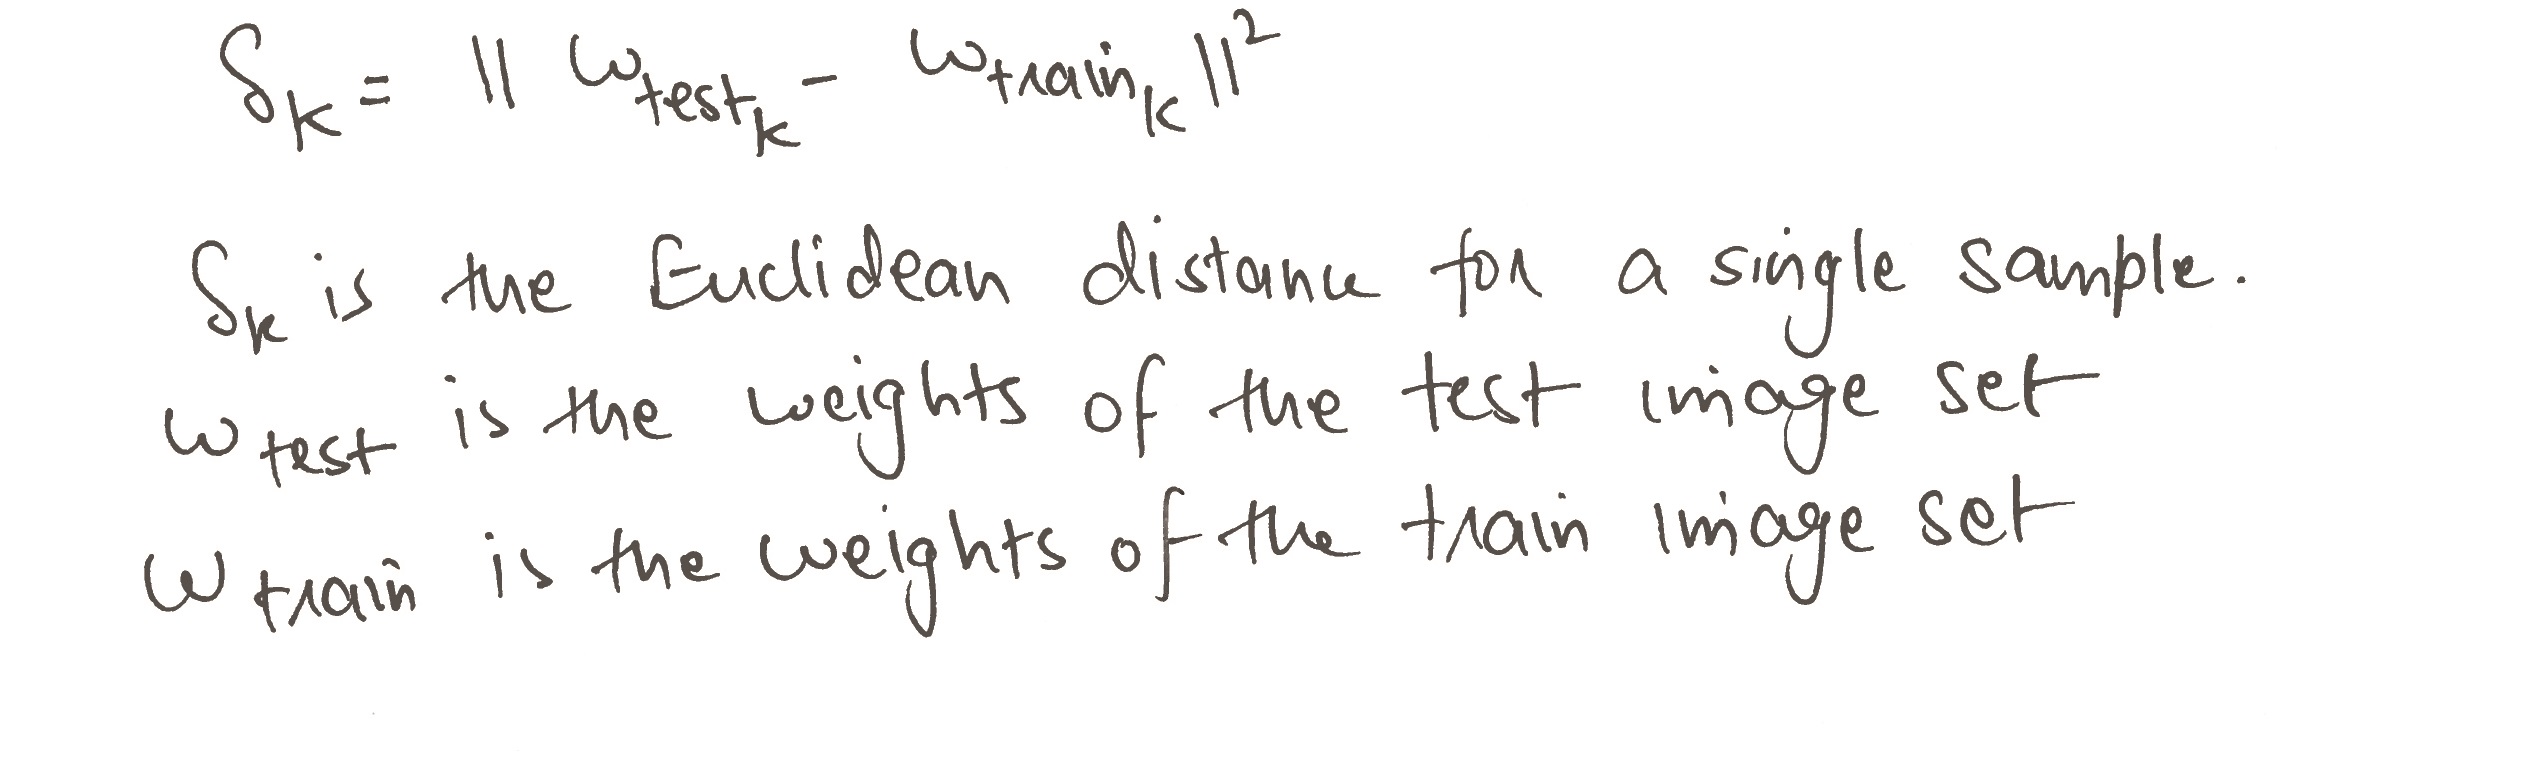 δₖ = || ω_test_k - ω_train_k ||²
δₖ is the Euclidean distance for a single sample.
ω_test is the weights of the test image set
ω_train is the weights of the train image set